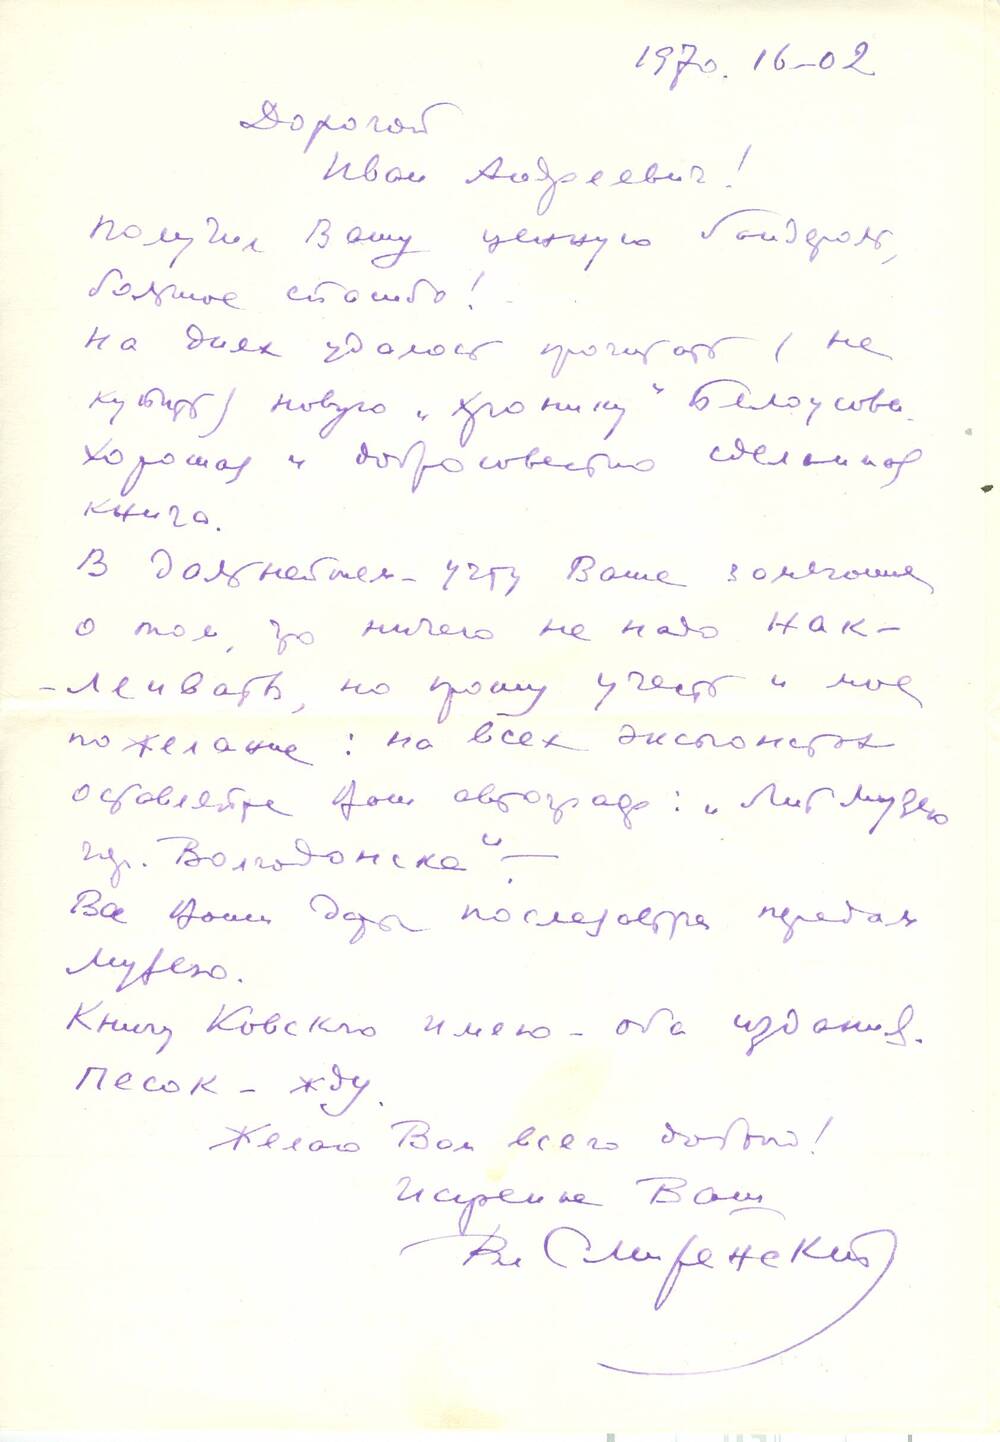 1970. 16-02
Дорогой
Иван Андреевич!
Получил Вашу ценную бандероль,
большое спасибо!
На днях удалось прочитать (не
купить) новую „Хронику" Белоусова.
Хорошая и добросовестно сделанная
книга.
В дальнейшем - учту Ваше замечание
о том, что ничего не надо нак-
-леивать, но прошу учесть и мое
пожелание: на всех экспонатах
оставляйте Ваш автограф: „Литмузею
гор. Волгодонска" -
Все Ваши дары послезавтра передам
музею.
Книгу Ковского имею - оба издания.
Песок - жду.
Желаю Вам всего доброго!
Искренне Ваш
Вл Смиренский